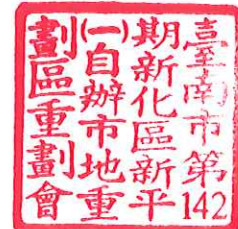 臺南市第142
期新化區新平
(一)自辦市地重
劃區重劃會